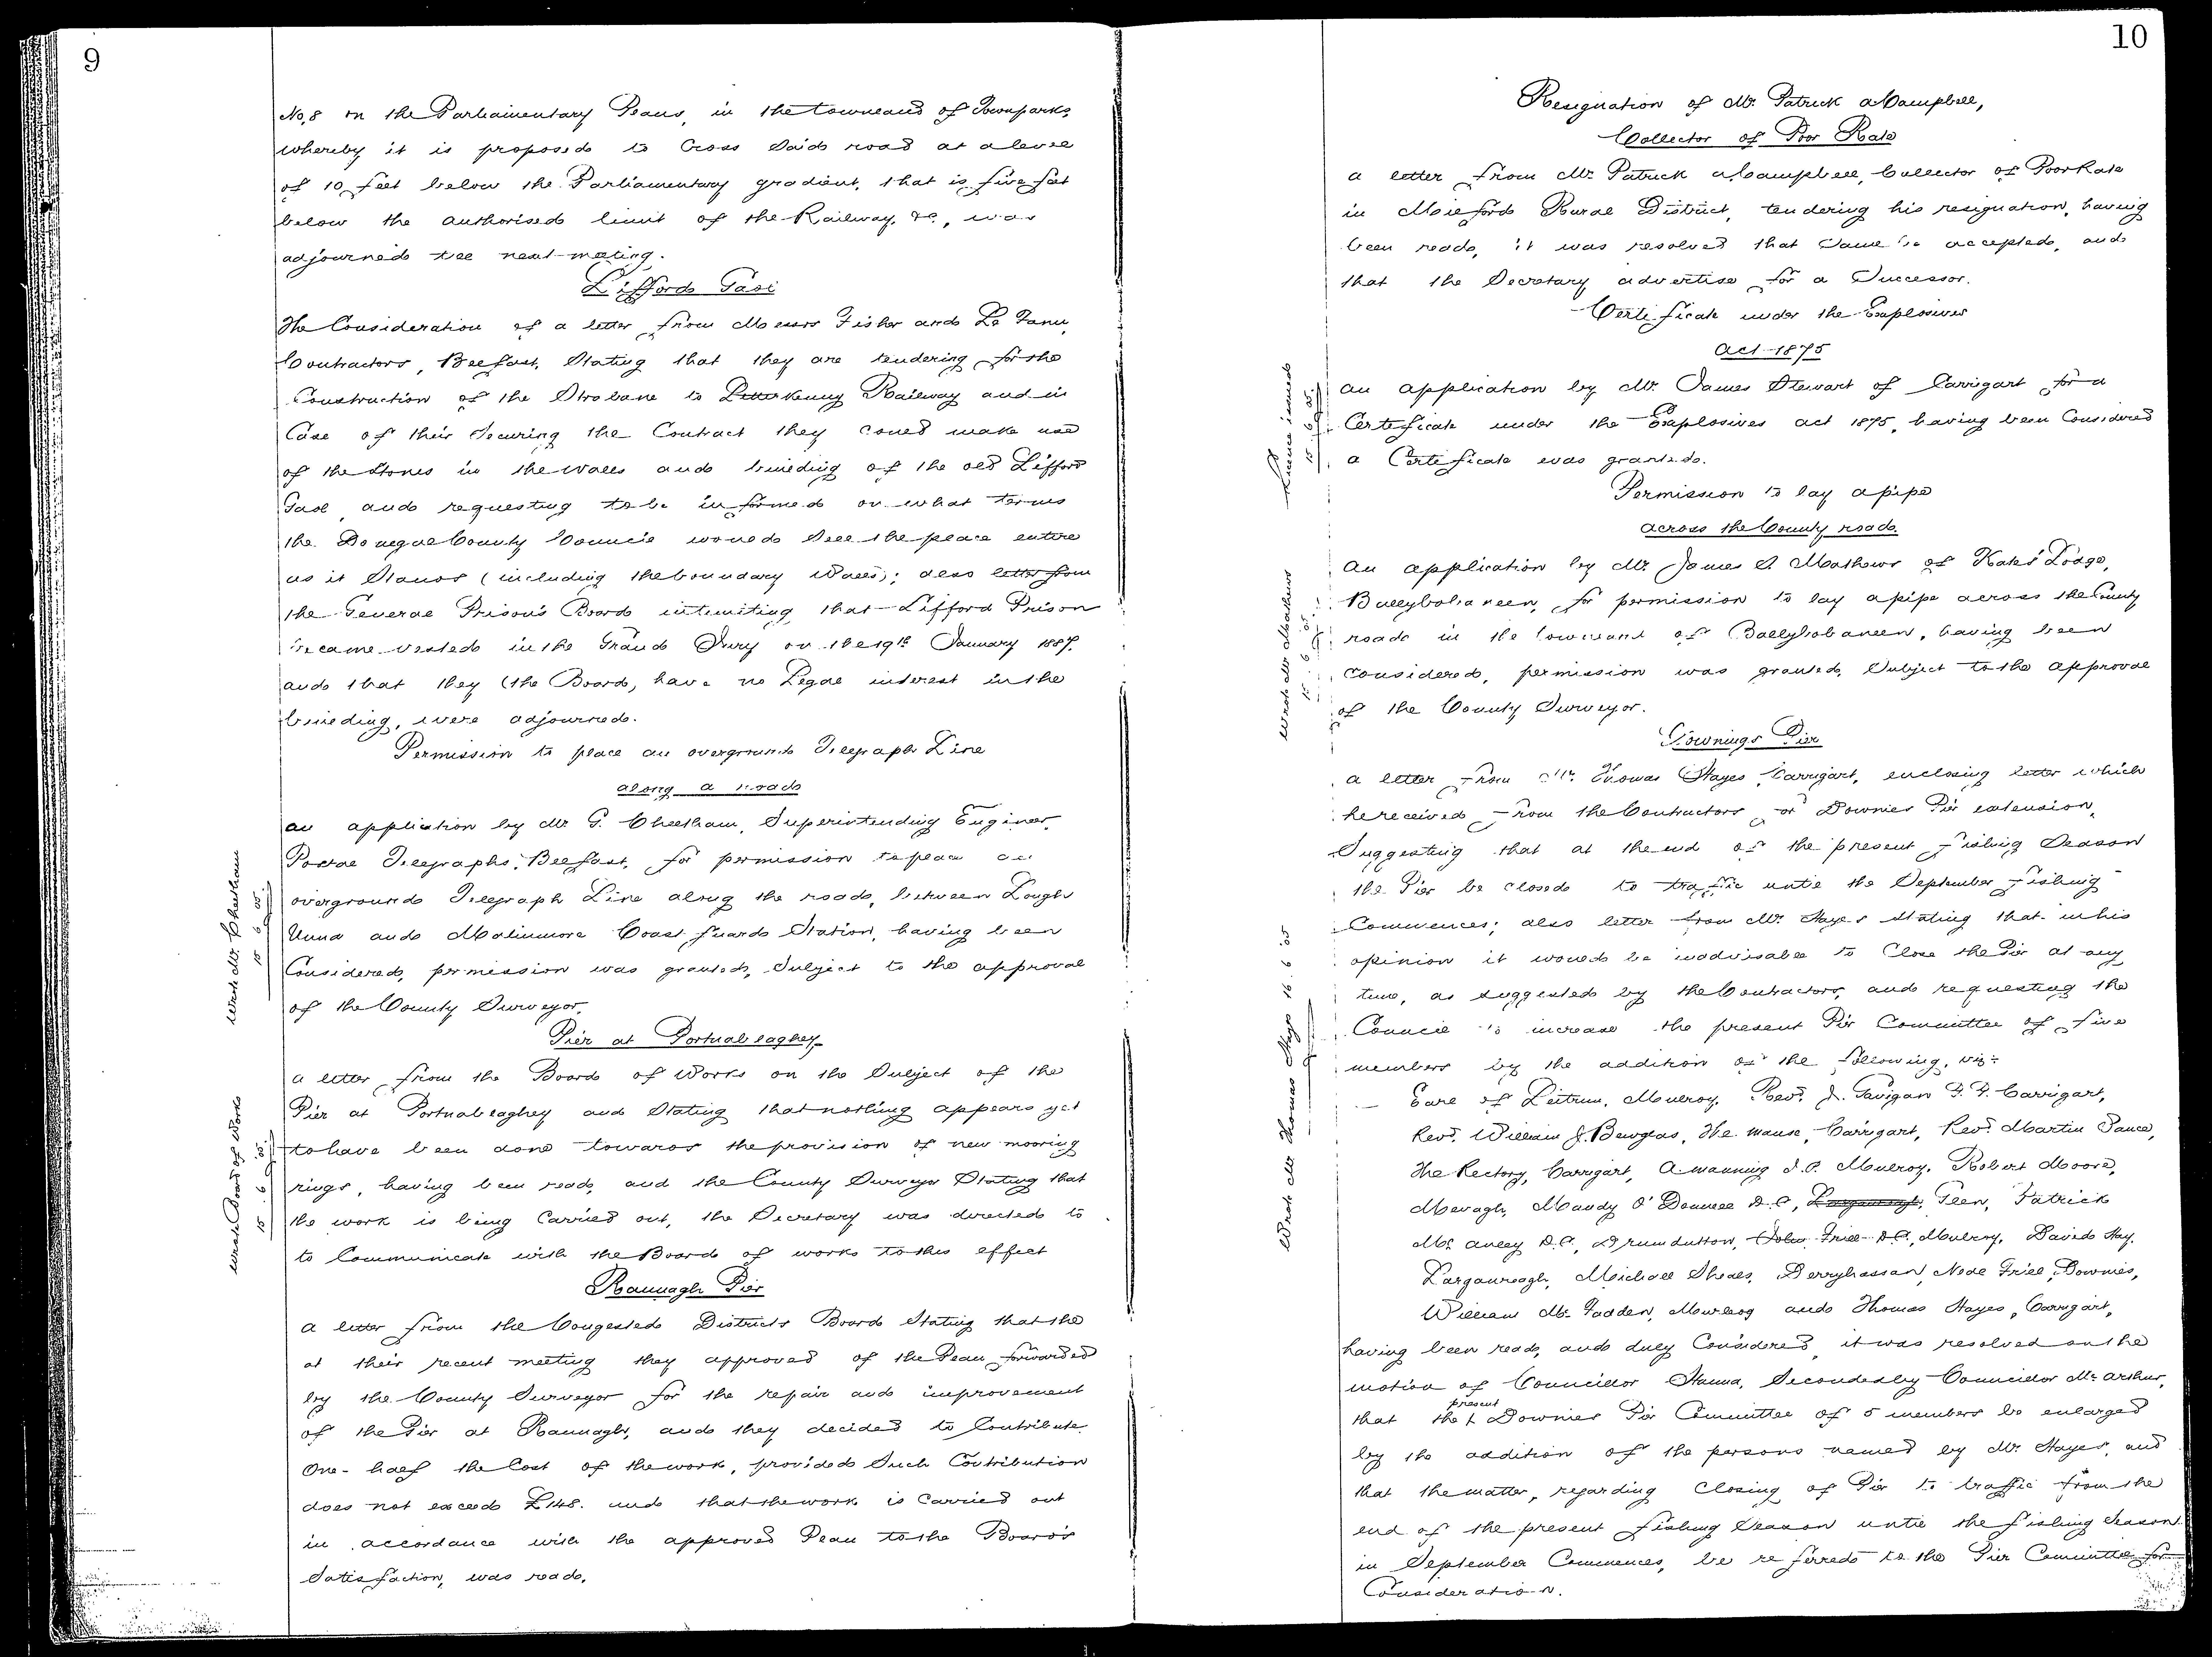 9
No, 8 on the Parliamentary Plans, in the townland of Townparks,
whereby it is proposed to Cross Said road at a level
of 10 feet below the Parliamentary gradient, that is five feet
below the authorised limit of the Railway, &c., was
adjourned till next meeting.
Lifford Gaol
The Consideration of a letter from Messrs Fisher and Le Fanu,
Contractors, Belfast, Stating that they are tendering for the
Construction of the Strabane to Letterkenny Railway and in
Case of their Securing the Contract they could make use
of the Stones in the walls and building of the old Lifford
Gaol, and requesting to be informed on what terms
the Donegal County Council would Sell the place entire
as it Stands (including the boundary Walls); also letter from
the General Prison's Board intimiting that Lifford Prison
became vested in the Grand Jury on the 19th January 1887.
and that they (the Board, have no Legal interest in the
building, were adjourned.
Permission to place an overground Telegraph Line
along a road
an application by Mr. G. Cheetham, Superintending Engineer,
Postal Telegraphs, Belfast, for permission to place an
overground Telegraph Line along the road, between Lough
Unna and Malinmore Coast Guard Station, having been
Considered, permission was granted, Subject to the approval
of the County Surveyor.
Wrote Mr. Cheetham
15 6 05.
Pier at Portnablaghey
a letter from the Board of Works on the Subject of the
Pier at Portnablaghey and Stating that nothing appears yet
to have been done towards the provision of new mooring
rings, having been read, and the County Surveyor Stating that
the work is being Carried out, the Secretary was directed to
to Communicate with the Board of works to this effect
Wrote Board of Works
15 6 05.
Rannagh Pier
a letter from the Congested Districts Board Stating that the
at their recent meeting they approved of the Plan forwarded
by the County Surveyor for the repair and improvement
of the Pier at Rannagh, and they decided to Contribute
One-half the Cost of the work, provided Such Contribution
does not exceed £148. and that the work is Carried out
in accordance with the approved Plan to the Board's
Satisfaction, was read.
10
Resignation of Mr. Patrick a Campbell,
Collector of Poor Rate
a letter from Mr. Patrick a. Campbell, Collector of Poor Rate
in Milford Rural District, tendering his resignation, having
been read, it was resolved that Same be accepted, and
that the Secretary advertise for a Successor.
Certificate under the Explosives
Act 1875
an application by Mr. James Stewart of Carrigart for a
Certificate under the Explosives act 1875, having been Considered
a Certificate was granted.
Licence issued
15 6 05.
Permission to lay a pipe
across the County road.
an application by Mr. James S. Mathews of Kate's Lodge,
Ballybobaneen, for permission to lay a pipe across the County
road in the townland of Ballybobaneen, having been
Considered, permission was granted, Subject to the approval
of the County Surveyor.
Wrote Mr. Mathews
15 6 05.
Downings Pier
a letter from Mr. Thomas Hayes, Carrigart, enclosing letter which
he received from the Contractors of Downies Pier extension,
Suggesting that at the end of the present fishing Season
the Pier be closed to traffic until the September fishing
Commences; also letter from Mr. Hayes Stating that in his
opinion it would be inadvisable to Close the Pier at any
time, as suggested by the Contractors, and requesting the
Council to increase the present Pier Committee of five
members by the addition of the following, viz:
Earl of Leitrim, Mulroy. Revd. J. Gavigan P.P. Carrigart,
Revd. William J. Bewglas, The manse, Carrigart, Revd. Martin
The Rectory, Carrigart, A. manning J.P. Mulroy. Robert Moore,
Mevagh, Mandy O'Donnell D.C, Glen, Patrick
Mc. auley D.C., Drumdutton, John Friel D.C., Mulroy. David Hay.
Larganreagh, Michael Shiels, Derryhassan, Neal Friel, Downies,
William Mc. Fadden, and Thomas Hayes, Carrigart,
having been read, and duly Considered, it was resolved on the
motion of Councillor Hanna, Seconded by Councillor Mc. arthur,
that the present Downies Pier Committee of 5 members be enlarged
by the addition of the persons named by Mr. Hayes, and
that the matter, regarding Closing of Pier to traffic from the
end of the present fishing Season until the fishing Season
in September Commences, be referred to the Pier Committee for
Consideration.
Wrote Mr Thomas Hayes 16. 6 05